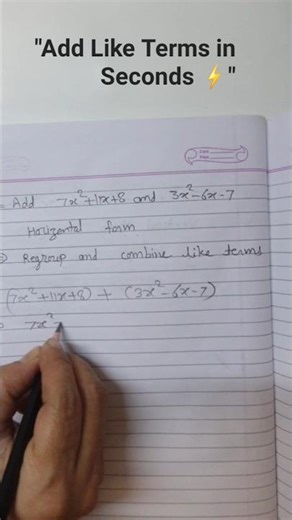 "Add Like Terms in
Seconds ⚡"
Add 7x²+11x+8 and 3x²-6x-7
Horizontal form
Regroup and combine like terms
(7x²+11x+8) + (3x²-6x-7)
7x²